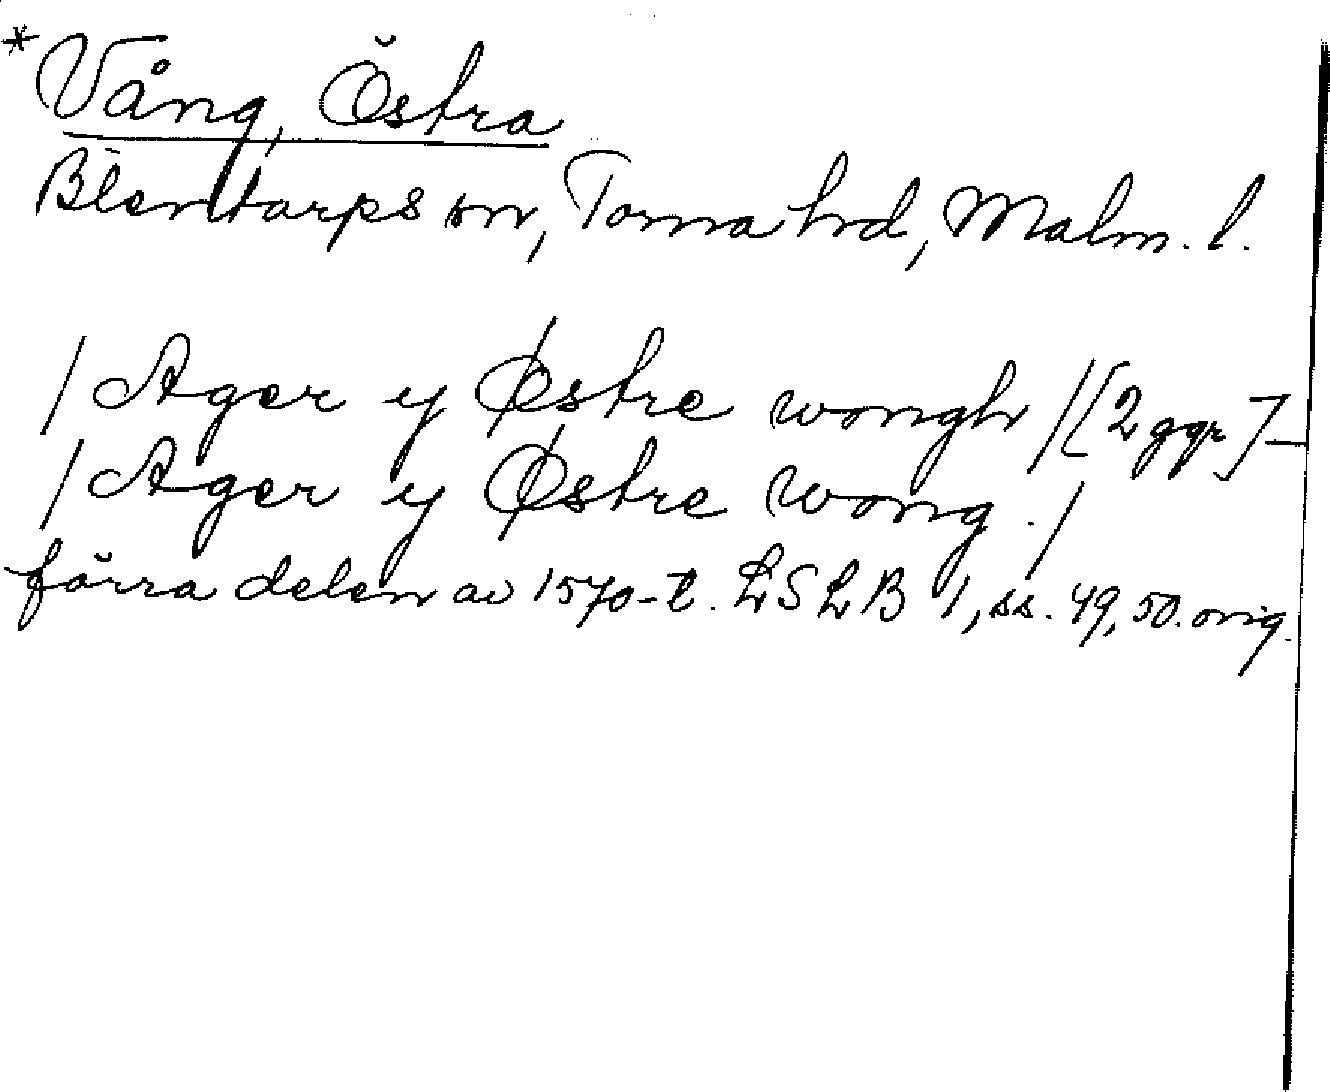 *Vång, Östra
Blentarps sn, Torna hrd, Malm. l.
/ Ager y Østre wongh / [2 ggr] –
/ Ager y Østre wong. /
förra delen av 1570-t. LSLB 1, ss. 49, 50. orig.